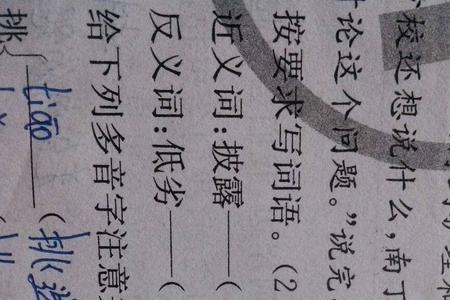 校还想说什么,南丁
论这个问题。”说完
按要求写词语。(2
近义词:披露——(
反义词:低劣——(
给下列多音字注意
挑 tiāo ——(挑选